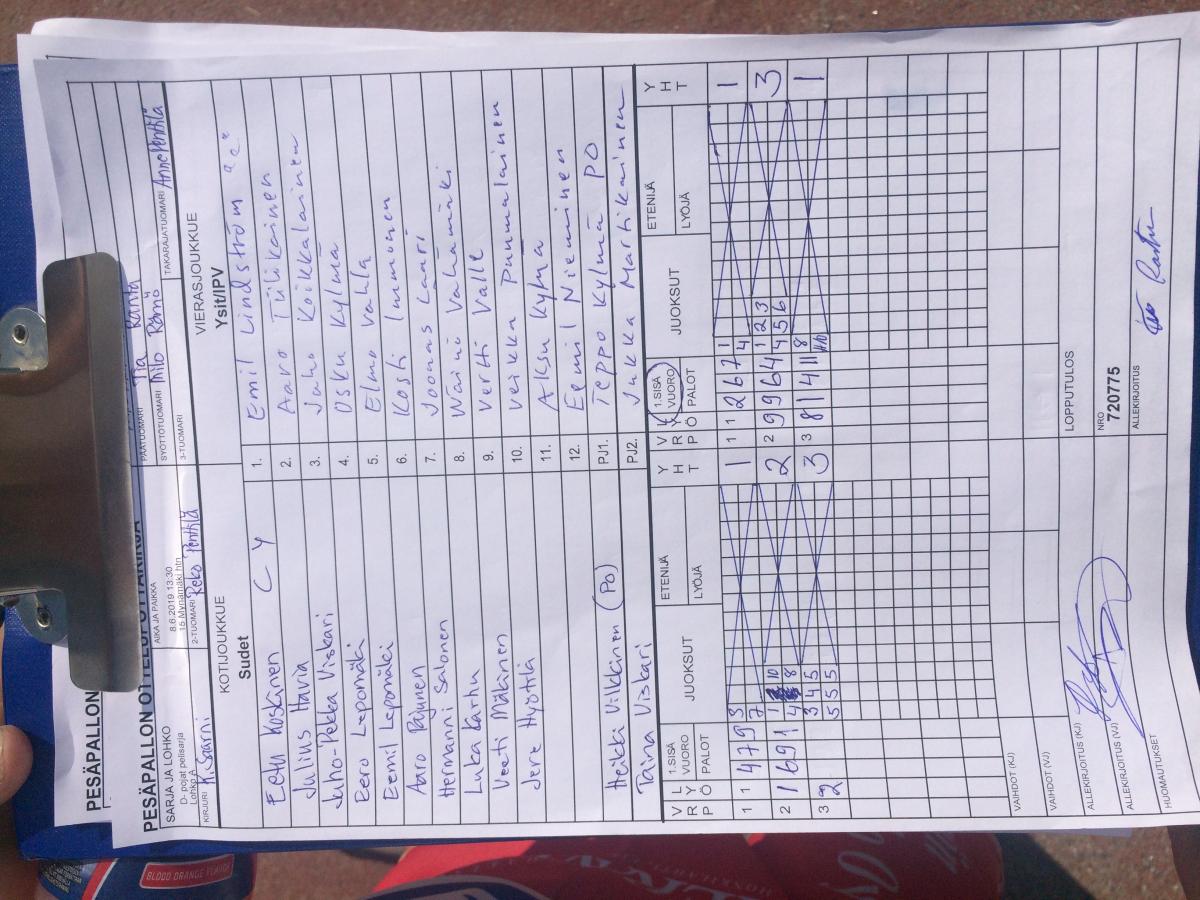 PESÄPALLON
PESÄPALLON OTTELUPÖYTÄKIRJA
SARJA JA LOHKO
D- pojat pelisarja
Lohko A
AIKA JA PAIKKA
8.6.2019 13:30
15 Mynämäki htn
PÄÄTUOMARI Tia Ranta
SYÖTTÖTUOMARI Milo Rämö
TAKARAJATUOMARI Anne Penttilä
KIRJURI K. Saarni
2-TUOMARI Reko Penttilä
3-TUOMARI
KOTIJOUKKUE
Sudet
VIERASJOUKKUE
Ysit/IPV
Eetu Koskinen C Y 1. Emil Lindström "C"
Julius Havia 2. Aaro Tiilikainen
Juho-Pekka Viskari 3. Juho Koikkalainen
Eero Lepomäki 4. Osku Kylmä
Eemil Lepomäki 5. Elmo Vahla
Aaro Pajunen 6. Kosti Immonen
Hermanni Salonen 7. Joonas Laari
Luka Karhu 8. Wäinö Vähämäki
Veeti Mäkinen 9. Vertti Valle
Jere Hyötilä 10. Veikka Pummalainen
11. Aksu Kylmä
12. Eemil Nieminen
Heikki Vilkkinen (PO) PJ1. Teppo Kylmä PO
Taina Viskari PJ2. Jukka Martikainen
V R L Y P Ö 1.SISÄ VUORO PALOT JUOKSUT ETENIJÄ LYÖJÄ Y H T
V R L Y P Ö 1.SISÄ VUORO PALOT JUOKSUT ETENIJÄ LYÖJÄ Y H T
1 1 4 7 9 3 1 1 1 2 6 7 1 1
7 4
2 1 6 9 1 1 10 2 2 9 9 6 4 1 2 3 3
4 8 4 5 6
3 2 3 4 5 3 3 8 1 4 11 8 1
5 5 5
VAIHDOT (KJ)
VAIHDOT (VJ)
LOPPUTULOS
ALLEKIRJOITUS (KJ)
NRO
720775
ALLEKIRJOITUS (VJ)
ALLEKIRJOITUS
HUOMAUTUKSET
BLOOD ORANGE